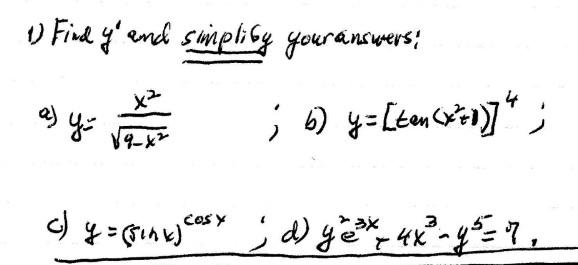 1) Find y' and simplify your answers:
a) y = x² / √(9-x²) ; b) y = [tan(x²+1)]⁴ ;
c) y = (sin x)^cos x ; d) y²e^3x - 4x³ - y⁵ = 7.